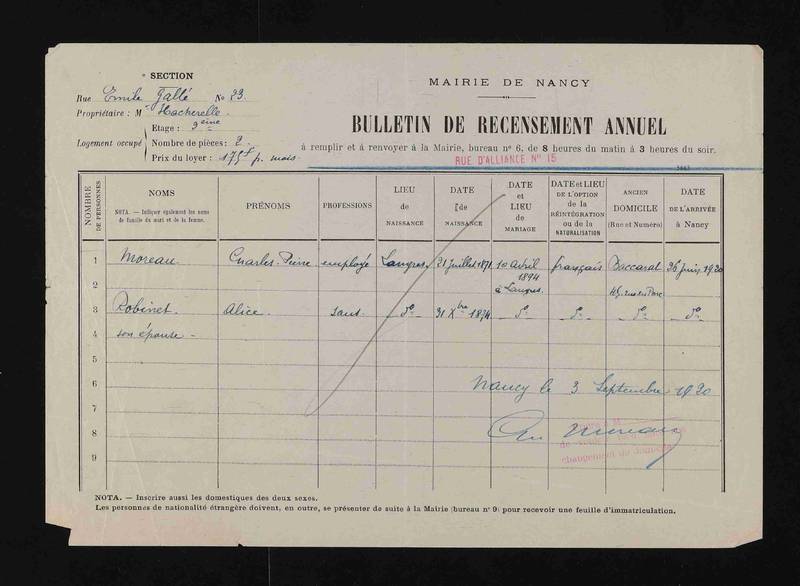 SECTION
Rue Emile Gallé No 23.
Propriétaire : M Hacherelle.
Logement occupé
Etage : 3ème
Nombre de pièces : 2.
Prix du loyer : 175f p. mois
MAIRIE DE NANCY
BULLETIN DE RECENSEMENT ANNUEL
à remplir et à renvoyer à la Mairie, bureau n° 6, de 8 heures du matin à 3 heures du soir.
RUE D'ALLIANCE N° 15
NOMBRE DE PERSONNES
NOMS
NOTA. — Indiquer également les noms de famille du mari et de la femme.
PRÉNOMS
PROFESSIONS
LIEU de NAISSANCE
DATE de NAISSANCE
DATE et LIEU de MARIAGE
DATE et LIEU DE L'OPTION de la RÉINTÉGRATION ou de la NATURALISATION
ANCIEN DOMICILE (Rue et Numéro)
DATE DE L'ARRIVÉE à Nancy
1 Moreau Charles-Pierre employé Langres 21 Juillet 1871 10 Avril français Baccarat 26 Juin 1920
1894
2 à Langres.
3 Robinet. Alice. sans do 31 Xbre 1874 do do do do
4 son épouse -
5
6 Nancy le 3 Septembre 1920
7
8 Ch Moreau
changement de domicile
9
NOTA. — Inscrire aussi les domestiques des deux sexes.
Les personnes de nationalité étrangère doivent, en outre, se présenter de suite à la Mairie (bureau n° 9) pour recevoir une feuille d'immatriculation.